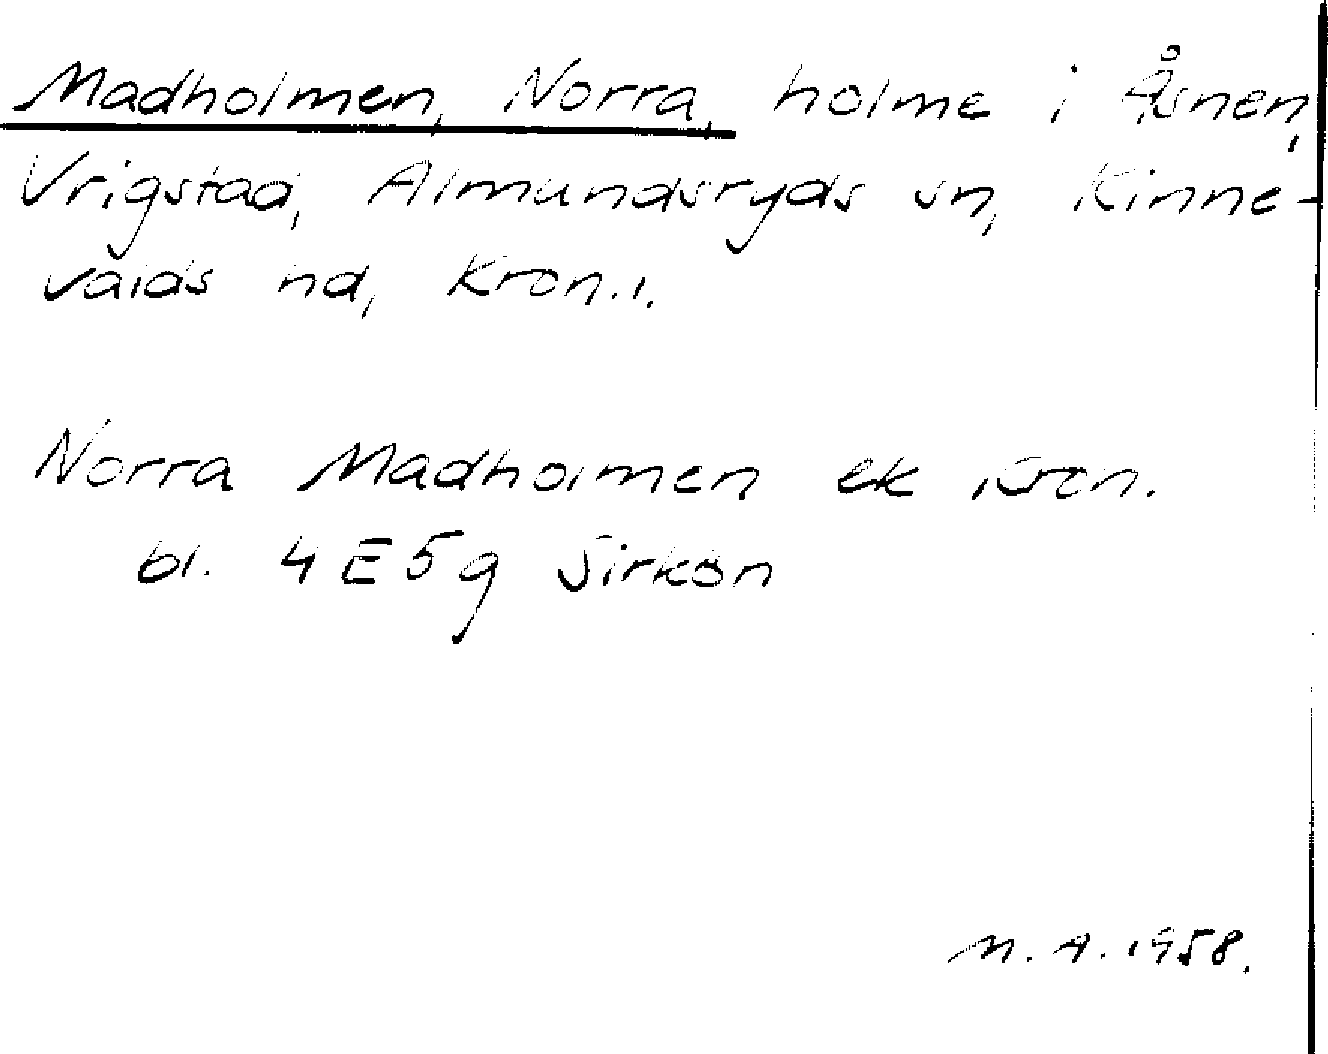 Madholmen, Norra, holme i Åsnen,
Vrigstad, Almundsryds sn, Kinne-
valds hd, Kron.l.
Norra Madholmen ek Kron.
bl. 4E5g Sirkön
M.A.1958.